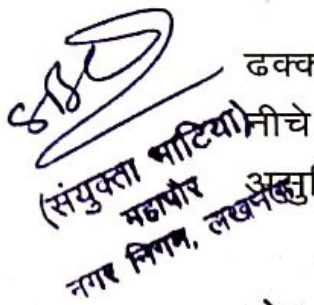 ढक्क
(संयुक्ता भाटिया)
नीचे
महापौर
नगर निगम, लखनऊ